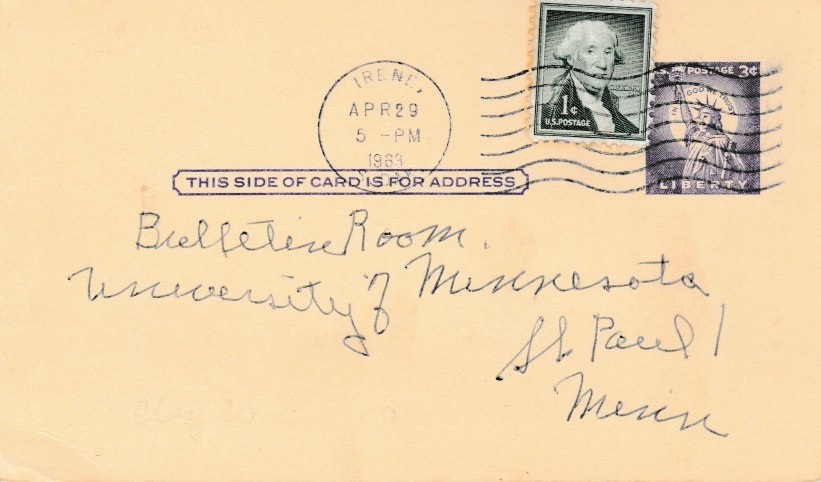 IRENE,
APR 29
5 -PM
1963
S. DAK.
1¢
U.S. POSTAGE
U.S. POSTAGE 3¢
IN GOD WE TRUST
LIBERTY
THIS SIDE OF CARD IS FOR ADDRESS
Bulletin Room.
University of Minnesota
St. Paul 1
Minn